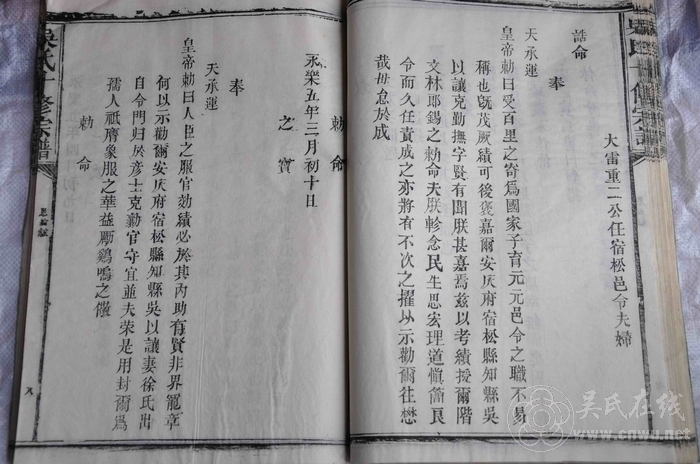 吳氏十修宗譜
大雷重二公任宿松邑令夫婦
誥命
奉
天承運
皇帝勅曰受百里之寄爲國家子育元元邑令之職不易
稱也旣茂厥績可後褒嘉爾安庆府宿松縣知縣吳
以讓克勤撫字賢有聞朕甚嘉焉兹以考績授爾階
文林郎錫之勅命夫朕軫念民生思宏理道慎簡良
令而久任責成之亦將有不次之擢以示勸爾往懋
哉毋怠於成
勅命
之寶
永樂五年三月初十日
奉
天承運
皇帝勅曰人臣之服官効績必於其內助有賢非畀寵章
何以示勸爾安庆府宿松縣知縣吳以讓妻徐氏出
自令門归於彦士克勤官守宜並夫荣是用封爾爲
孺人祇膺象服之華益勵鷄鳴之儆
勅命
吳氏十修宗譜
恩綸誌
吴氏在线
www.cnwu.net